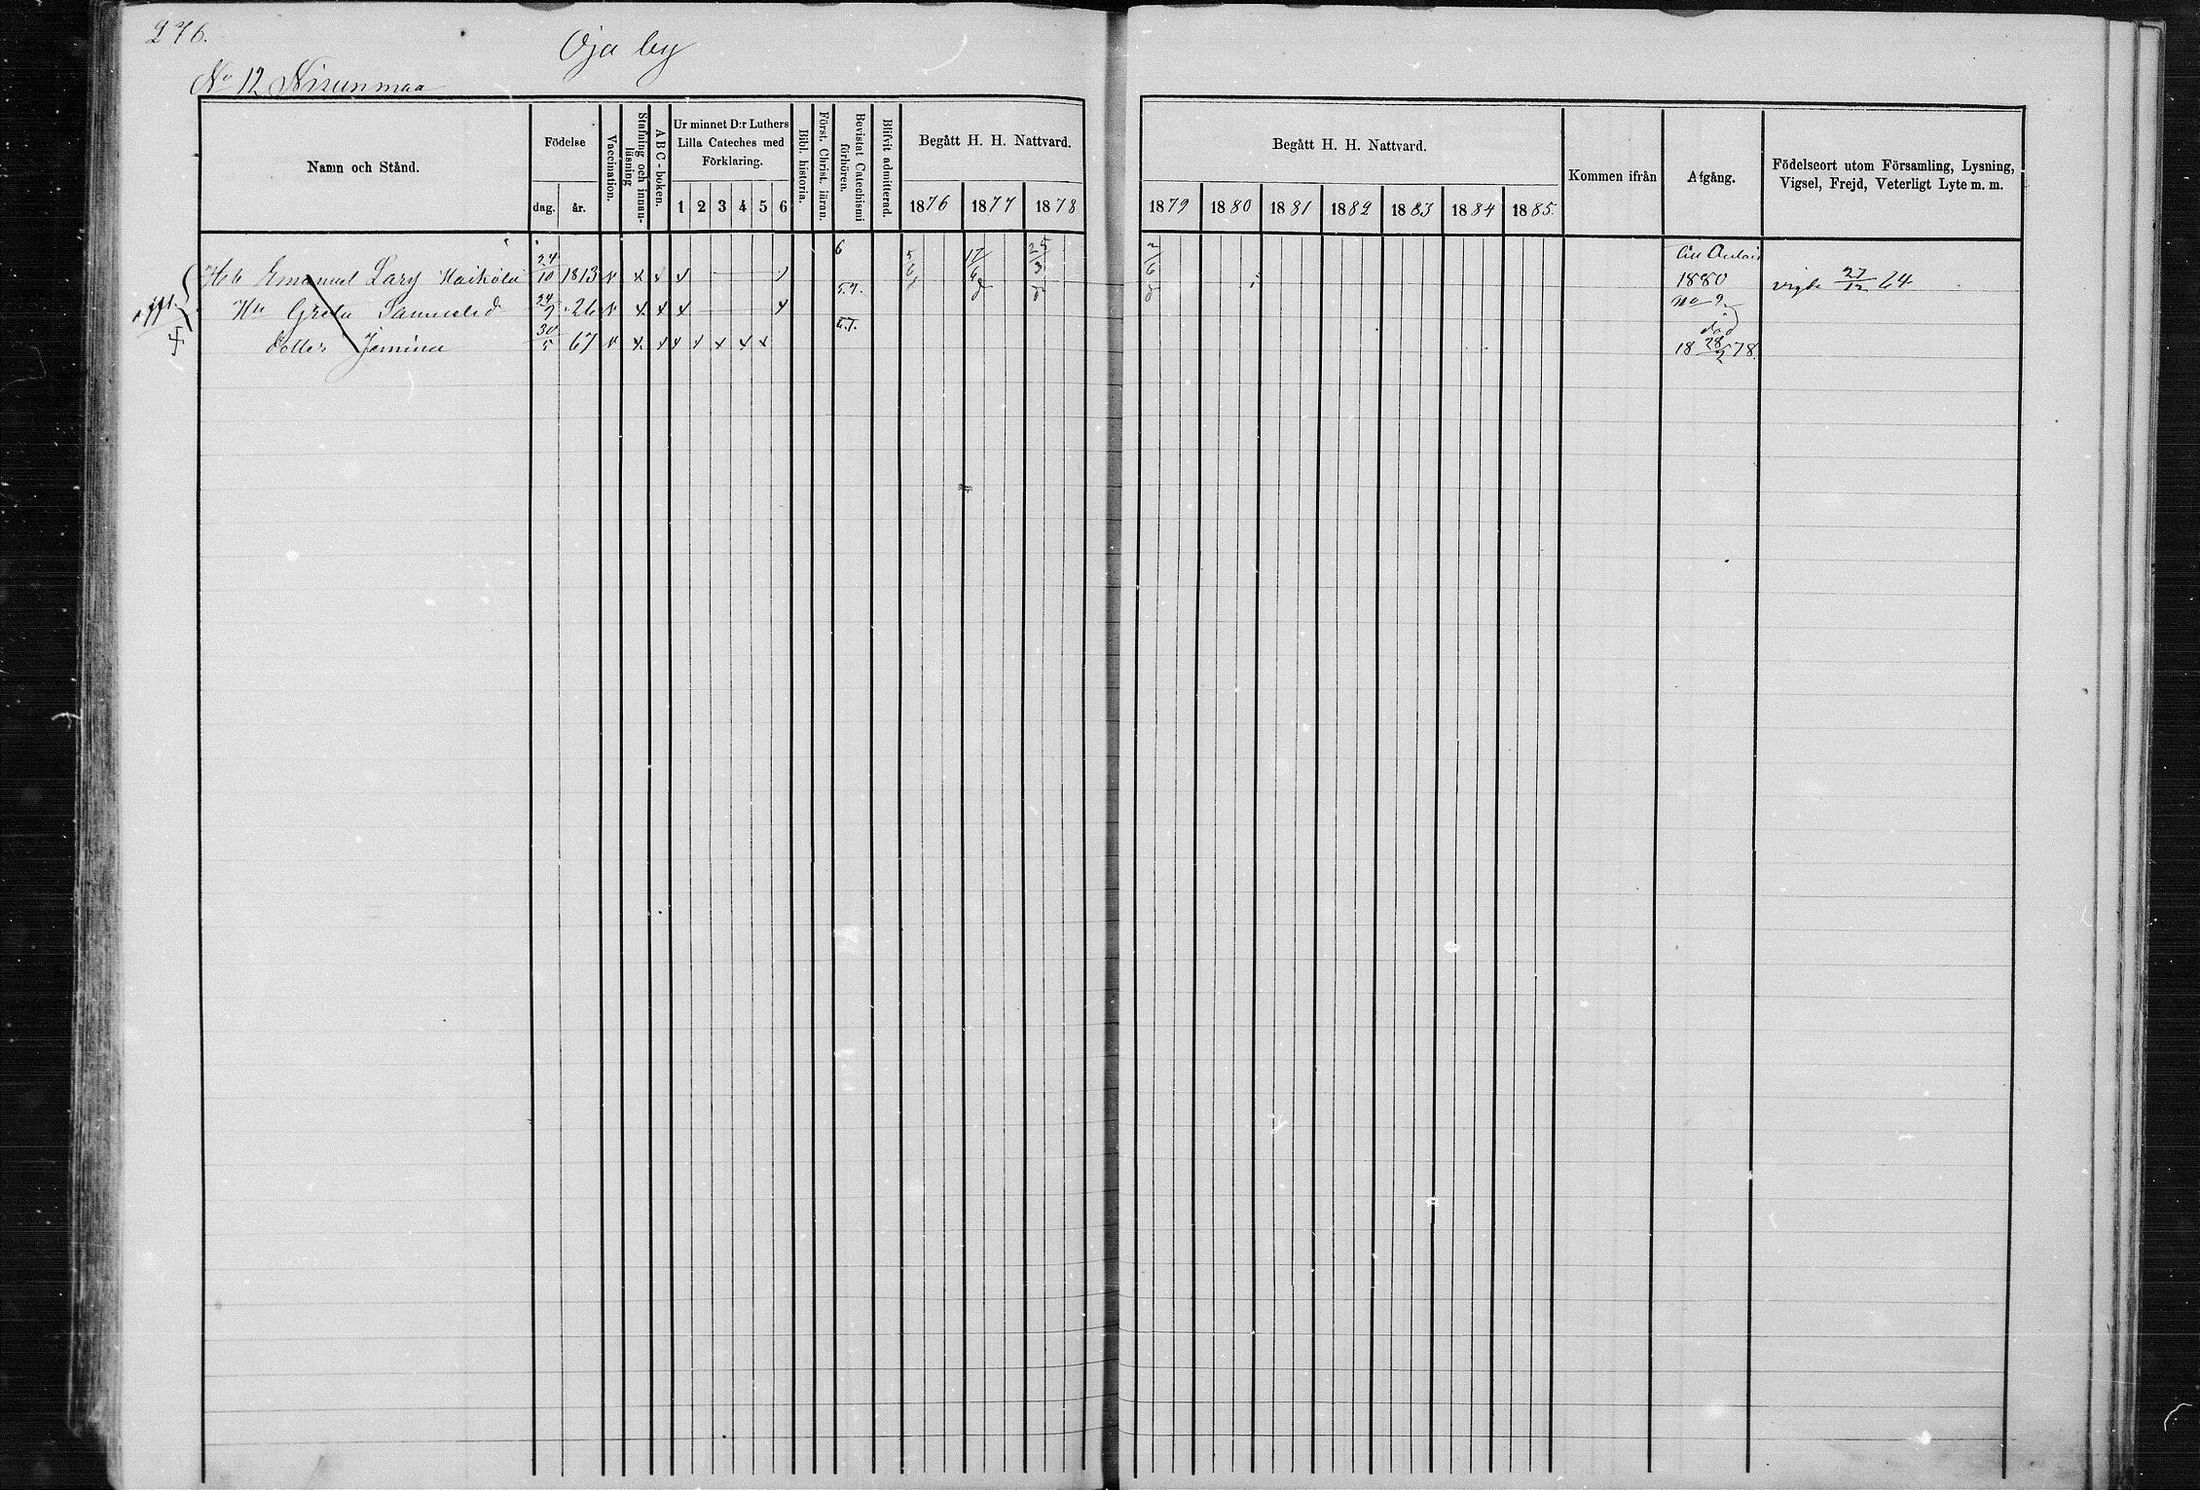 276.
Oja by
No 12 Nisunmaa
Namn och Stånd.
Födelse
dag. år.
Vaccination.
Stafning och innanläsning
ABC-boken.
Ur minnet D:r Luthers Lilla Cateches med Förklaring.
1 2 3 4 5 6
Bibl. historia.
Först. Christ. läran.
Bevistat Catechismi förhören.
Blifvit admitterad.
Begått H. H. Nattvard.
1876 1877 1878
Begått H. H. Nattvard.
1879 1880 1881 1882 1883 1884 1885.
Kommen ifrån
Afgång.
Födelseort utom Församling, Lysning, Vigsel, Frejd, Veterligt Lyte m. m.
Emanuel 24/10 1813 v x x x 6 5/6 17/6 25/3 2/6 1880 vigde 27/12 64
Hu Greta Samuelsd 24/9 26 v x x x x 5.7. No 9
dotter Jemina 30/5 67 v x x x x x x x 5.7. död 18 28/2 78.